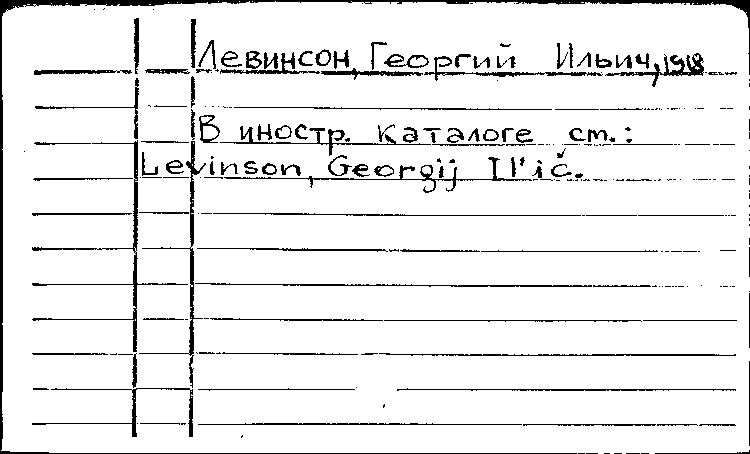 Левинсон, Георгий Ильич, 1918
В иностр. каталоге см.:
Levinson, Georgij Il'ič.